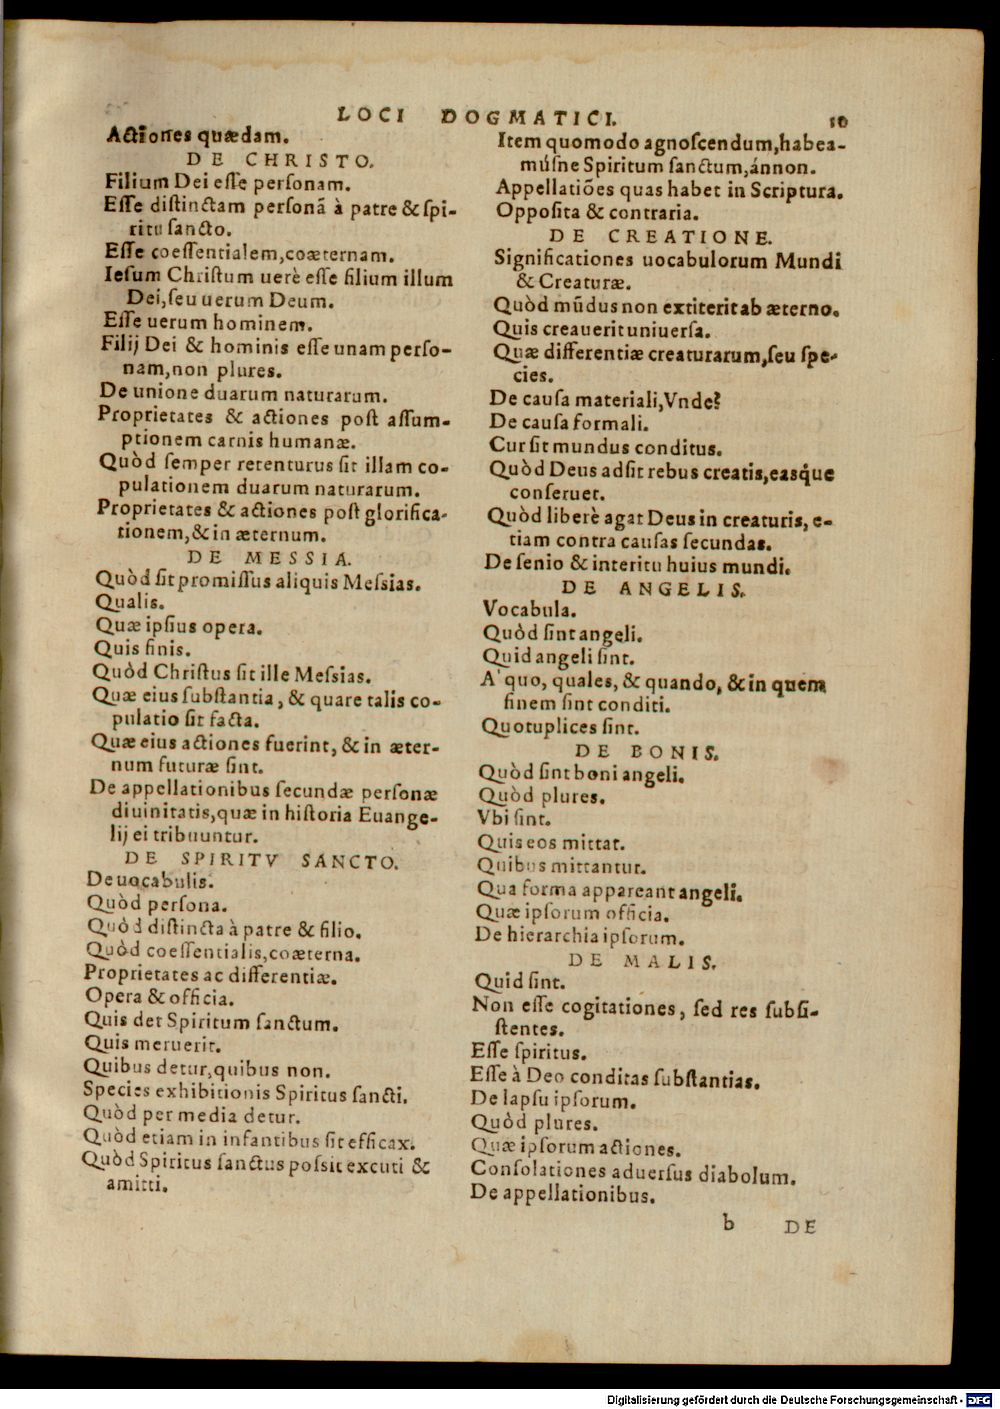 LOCI DOGMATICI. 10
Actiones quædam.
DE CHRISTO.
Filium Dei eſſe perſonam.
Eſſe diſtinctam perſonã à patre & ſpi-
ritu ſancto.
Eſſe coeſſentialem,coæternam.
Ieſum Chriſtum uerè eſſe filium illum
Dei,ſeu uerum Deum.
Eſſe uerum hominem.
Filij Dei & hominis eſſe unam perſo-
nam,non plures.
De unione duarum naturarum.
Proprietates & actiones poſt aſſum-
ptionem carnis humanæ.
Quòd ſemper retenturus ſit illam co-
pulationem duarum naturarum.
Proprietates & actiones poſt glorifica-
tionem,& in æternum.
DE MESSIA.
Quòd ſit promiſſus aliquis Meſsias.
Qualis.
Quæ ipſius opera.
Quis finis.
Quòd Chriſtus ſit ille Meſsias.
Quæ eius ſubſtantia, & quare talis co-
pulatio ſit facta.
Quæ eius actiones fuerint, & in æter-
num futuræ ſint.
De appellationibus ſecundæ perſonæ
diuinitatis,quæ in hiſtoria Euange-
lij ei tribuuntur.
DE SPIRITV SANCTO.
De uocabulis.
Quòd perſona.
Quòd diſtincta à patre & filio.
Quòd coeſſentialis,coæterna.
Proprietates ac differentiæ.
Opera & officia.
Quis det Spiritum ſanctum.
Quis meruerit.
Quibus detur,quibus non.
Species exhibitionis Spiritus ſancti.
Quòd per media detur.
Quòd etiam in infantibus ſit efficax.
Quòd Spiritus ſanctus poſsit excuti &
amitti.
Item quomodo agnoſcendum,habea-
múſne Spiritum ſanctum,ánnon.
Appellatiões quas habet in Scriptura.
Oppoſita & contraria.
DE CREATIONE.
Significationes uocabulorum Mundi
& Creaturæ.
Quòd mũdus non extiterit ab æterno.
Quis creauerit uniuerſa.
Quæ differentiæ creaturarum,ſeu ſpe-
cies.
De cauſa materiali,Vnde?
De cauſa formali.
Cur ſit mundus conditus.
Quòd Deus adſit rebus creatis,easq́ue
conſeruet.
Quòd liberè agat Deus in creaturis, e-
tiam contra cauſas ſecundas.
De ſenio & interitu huius mundi.
DE ANGELIS.
Vocabula.
Quòd ſint angeli.
Quid angeli ſint.
A' quo, quales, & quando, & in quem
finem ſint conditi.
Quotuplices ſint.
DE BONIS.
Quòd ſint boni angeli.
Quòd plures.
Vbi ſint.
Quis eos mittat.
Quibus mittantur.
Qua forma appareant angeli.
Quæ ipſorum officia.
De hierarchia ipſorum.
DE MALIS.
Quid ſint.
Non eſſe cogitationes, ſed res ſubſi-
ſtentes.
Eſſe ſpiritus.
Eſſe à Deo conditas ſubſtantias.
De lapſu ipſorum.
Quòd plures.
Quæ ipſorum actiones.
Conſolationes aduerſus diabolum.
De appellationibus.
b DE
Digitalisierung gefördert durch die Deutsche Forschungsgemeinschaft - DFG